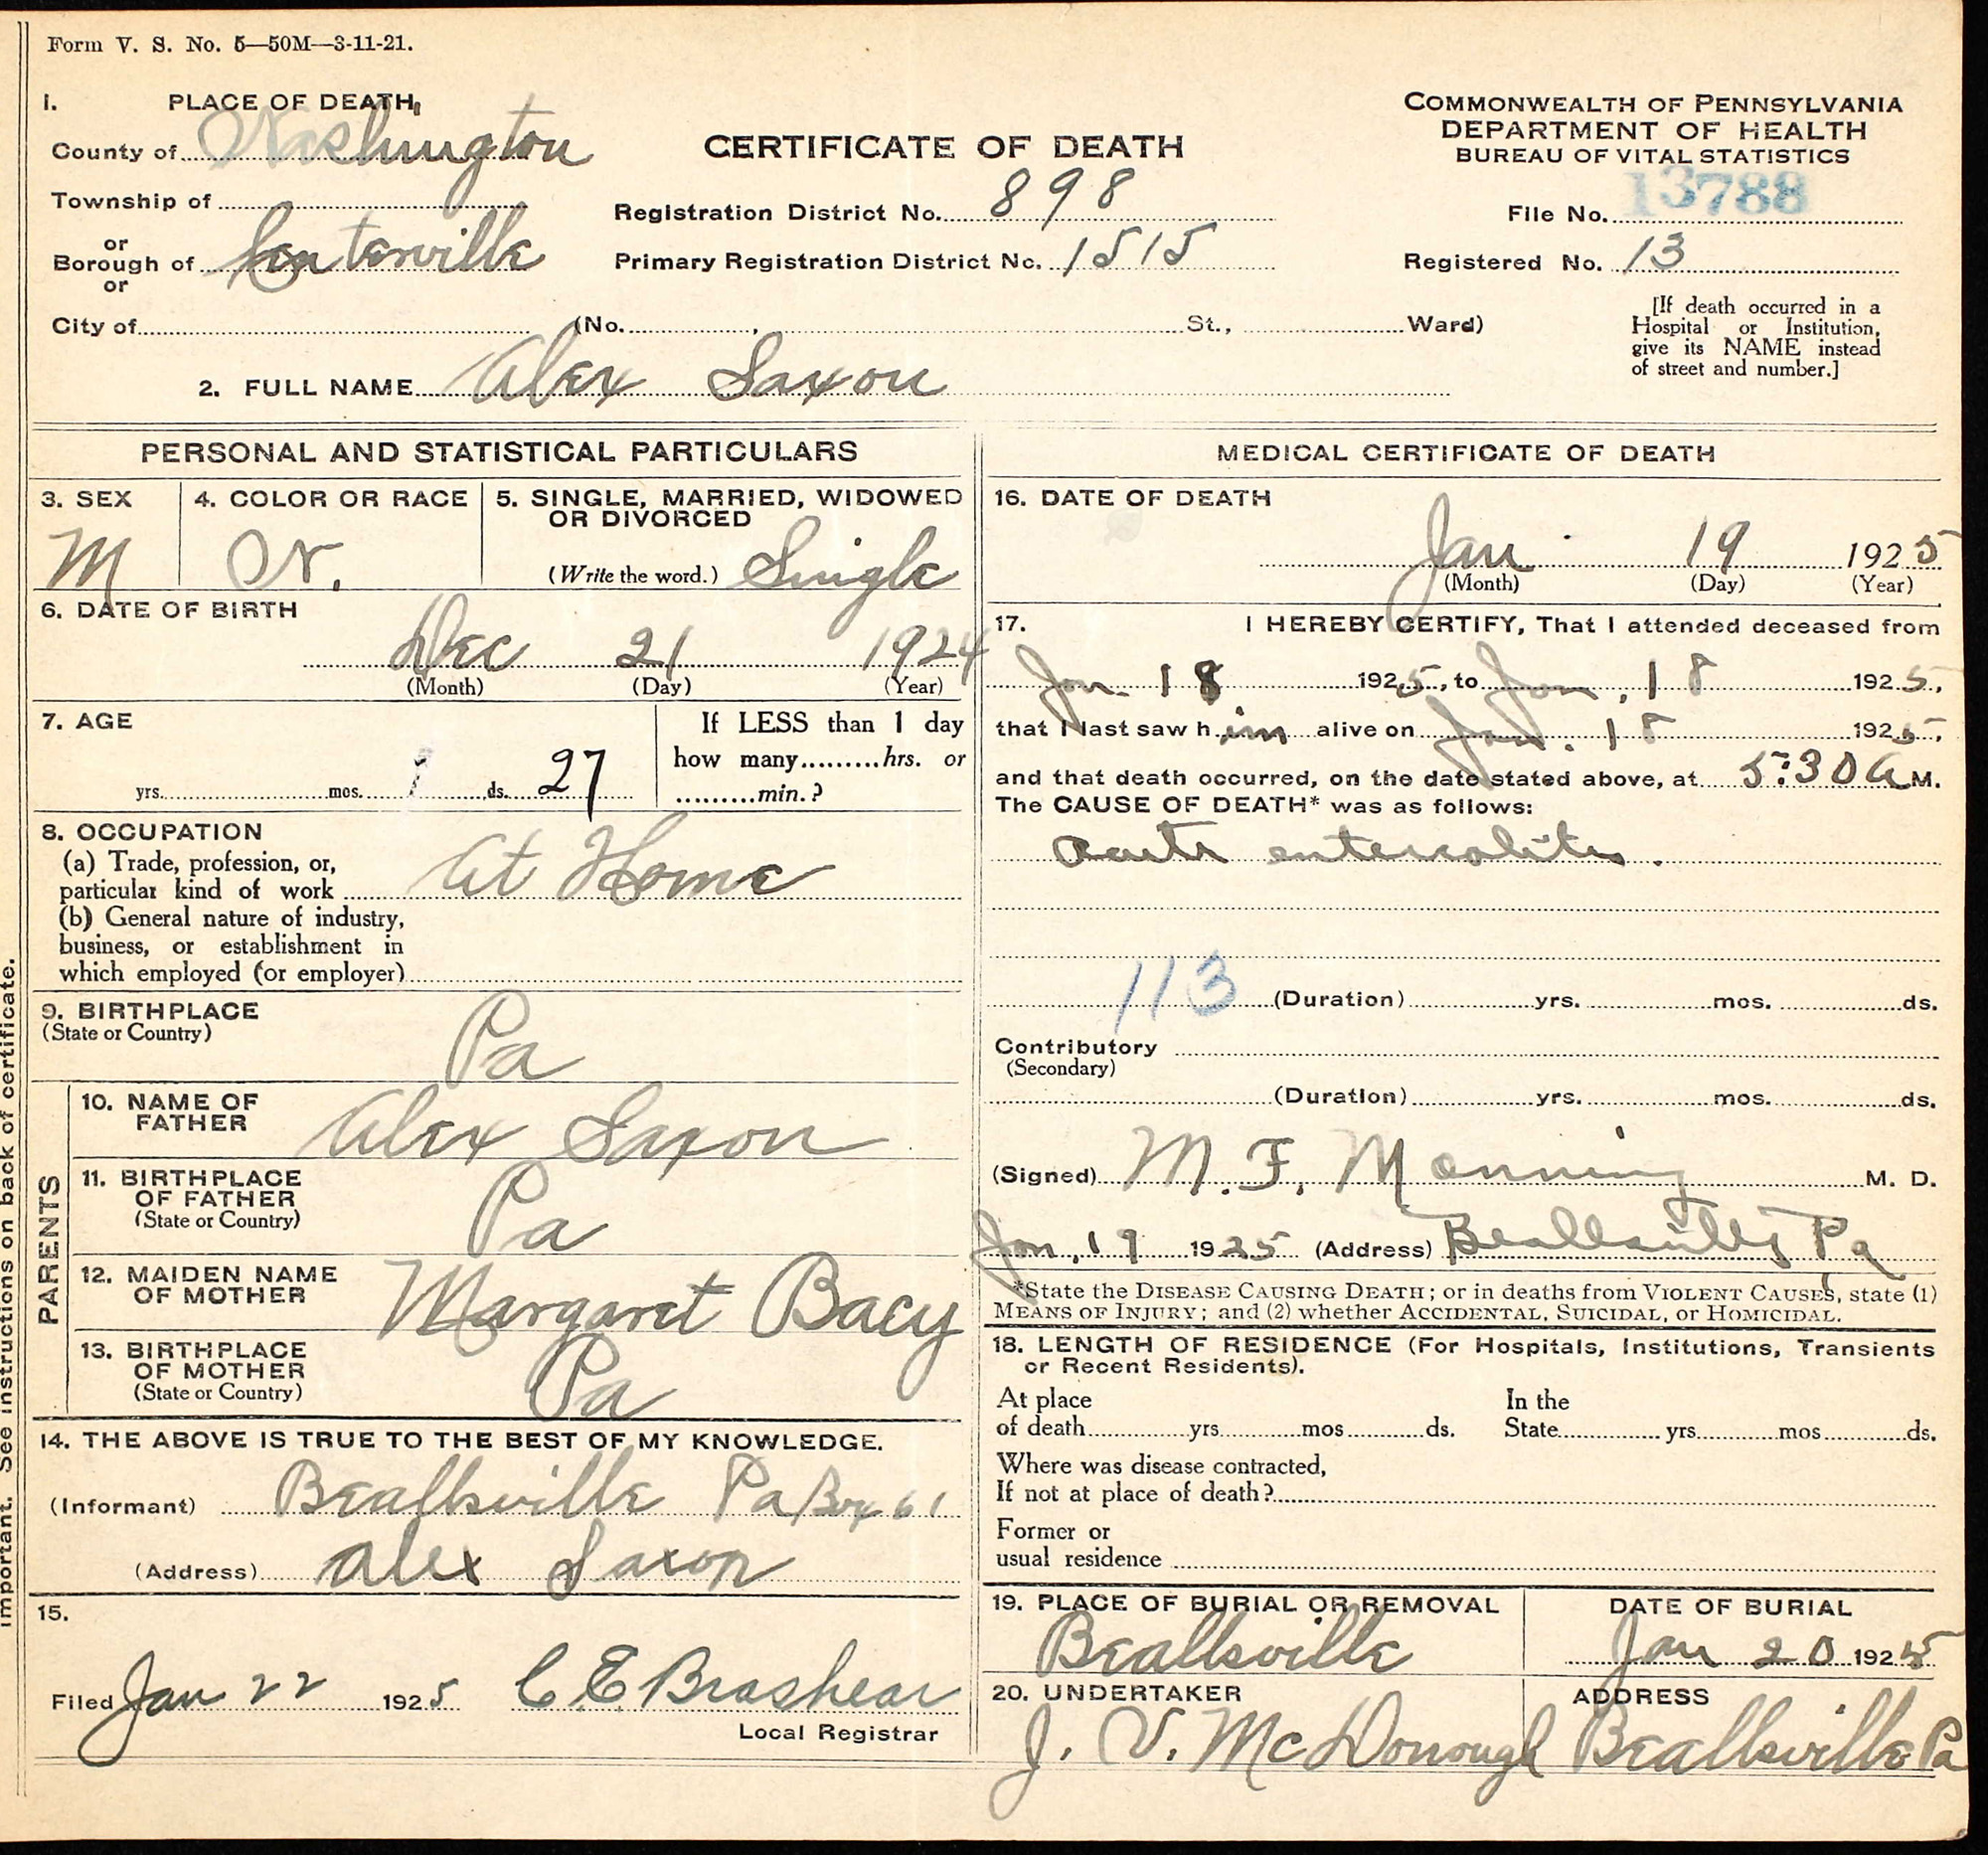 Form V. S. No. 5—50M—3-11-21.
1. PLACE OF DEATH,
County of Washington
Township of
or
Borough of Centerville
or
City of (No. , St., Ward)
CERTIFICATE OF DEATH
Registration District No. 898
Primary Registration District No. 1515
COMMONWEALTH OF PENNSYLVANIA
DEPARTMENT OF HEALTH
BUREAU OF VITAL STATISTICS
File No. 13788
Registered No. 13
[If death occurred in a
Hospital or Institution,
give its NAME instead
of street and number.]
2. FULL NAME Alex Saxon
PERSONAL AND STATISTICAL PARTICULARS
3. SEX
M
4. COLOR OR RACE
W.
5. SINGLE, MARRIED, WIDOWED
OR DIVORCED
(Write the word.) Single
6. DATE OF BIRTH
Dec 21 1924
(Month) (Day) (Year)
7. AGE
yrs. mos. ds. 27
If LESS than 1 day
how many hrs. or
min.?
8. OCCUPATION
(a) Trade, profession, or,
particular kind of work At Home
(b) General nature of industry,
business, or establishment in
which employed (or employer)
9. BIRTHPLACE
(State or Country)
Pa
PARENTS
10. NAME OF
FATHER
Alex Saxon
11. BIRTHPLACE
OF FATHER
(State or Country)
Pa
12. MAIDEN NAME
OF MOTHER
Margaret Bacy
13. BIRTHPLACE
OF MOTHER
(State or Country)
Pa
14. THE ABOVE IS TRUE TO THE BEST OF MY KNOWLEDGE.
(Informant) Beallsville Pa Box 61
(Address) Alex Saxon
15.
Filed Jan 22 1925 C E Brashear
Local Registrar
MEDICAL CERTIFICATE OF DEATH
16. DATE OF DEATH
Jan 19 1925
(Month) (Day) (Year)
17. I HEREBY CERTIFY, That I attended deceased from
Jan. 18 1925, to Jan. 18 1925,
that I last saw him alive on Jan. 18 1925,
and that death occurred, on the date stated above, at 5:30 A M.
The CAUSE OF DEATH* was as follows:
Acute enterocolitis.
113 (Duration) yrs. mos. ds.
Contributory
(Secondary)
(Duration) yrs. mos. ds.
(Signed) M. F. Manning M. D.
Jan. 19 1925 (Address) Beallsville, Pa
*State the DISEASE CAUSING DEATH; or in deaths from VIOLENT CAUSES, state (1)
MEANS OF INJURY; and (2) whether ACCIDENTAL, SUICIDAL, or HOMICIDAL.
18. LENGTH OF RESIDENCE (For Hospitals, Institutions, Transients
or Recent Residents).
At place
of death yrs mos ds.
In the
State yrs mos ds.
Where was disease contracted,
If not at place of death?
Former or
usual residence
19. PLACE OF BURIAL OR REMOVAL
Beallsville
DATE OF BURIAL
Jan 20 1925
20. UNDERTAKER
J. V. McDonough
ADDRESS
Beallsville Pa
important. See instructions on back of certificate.